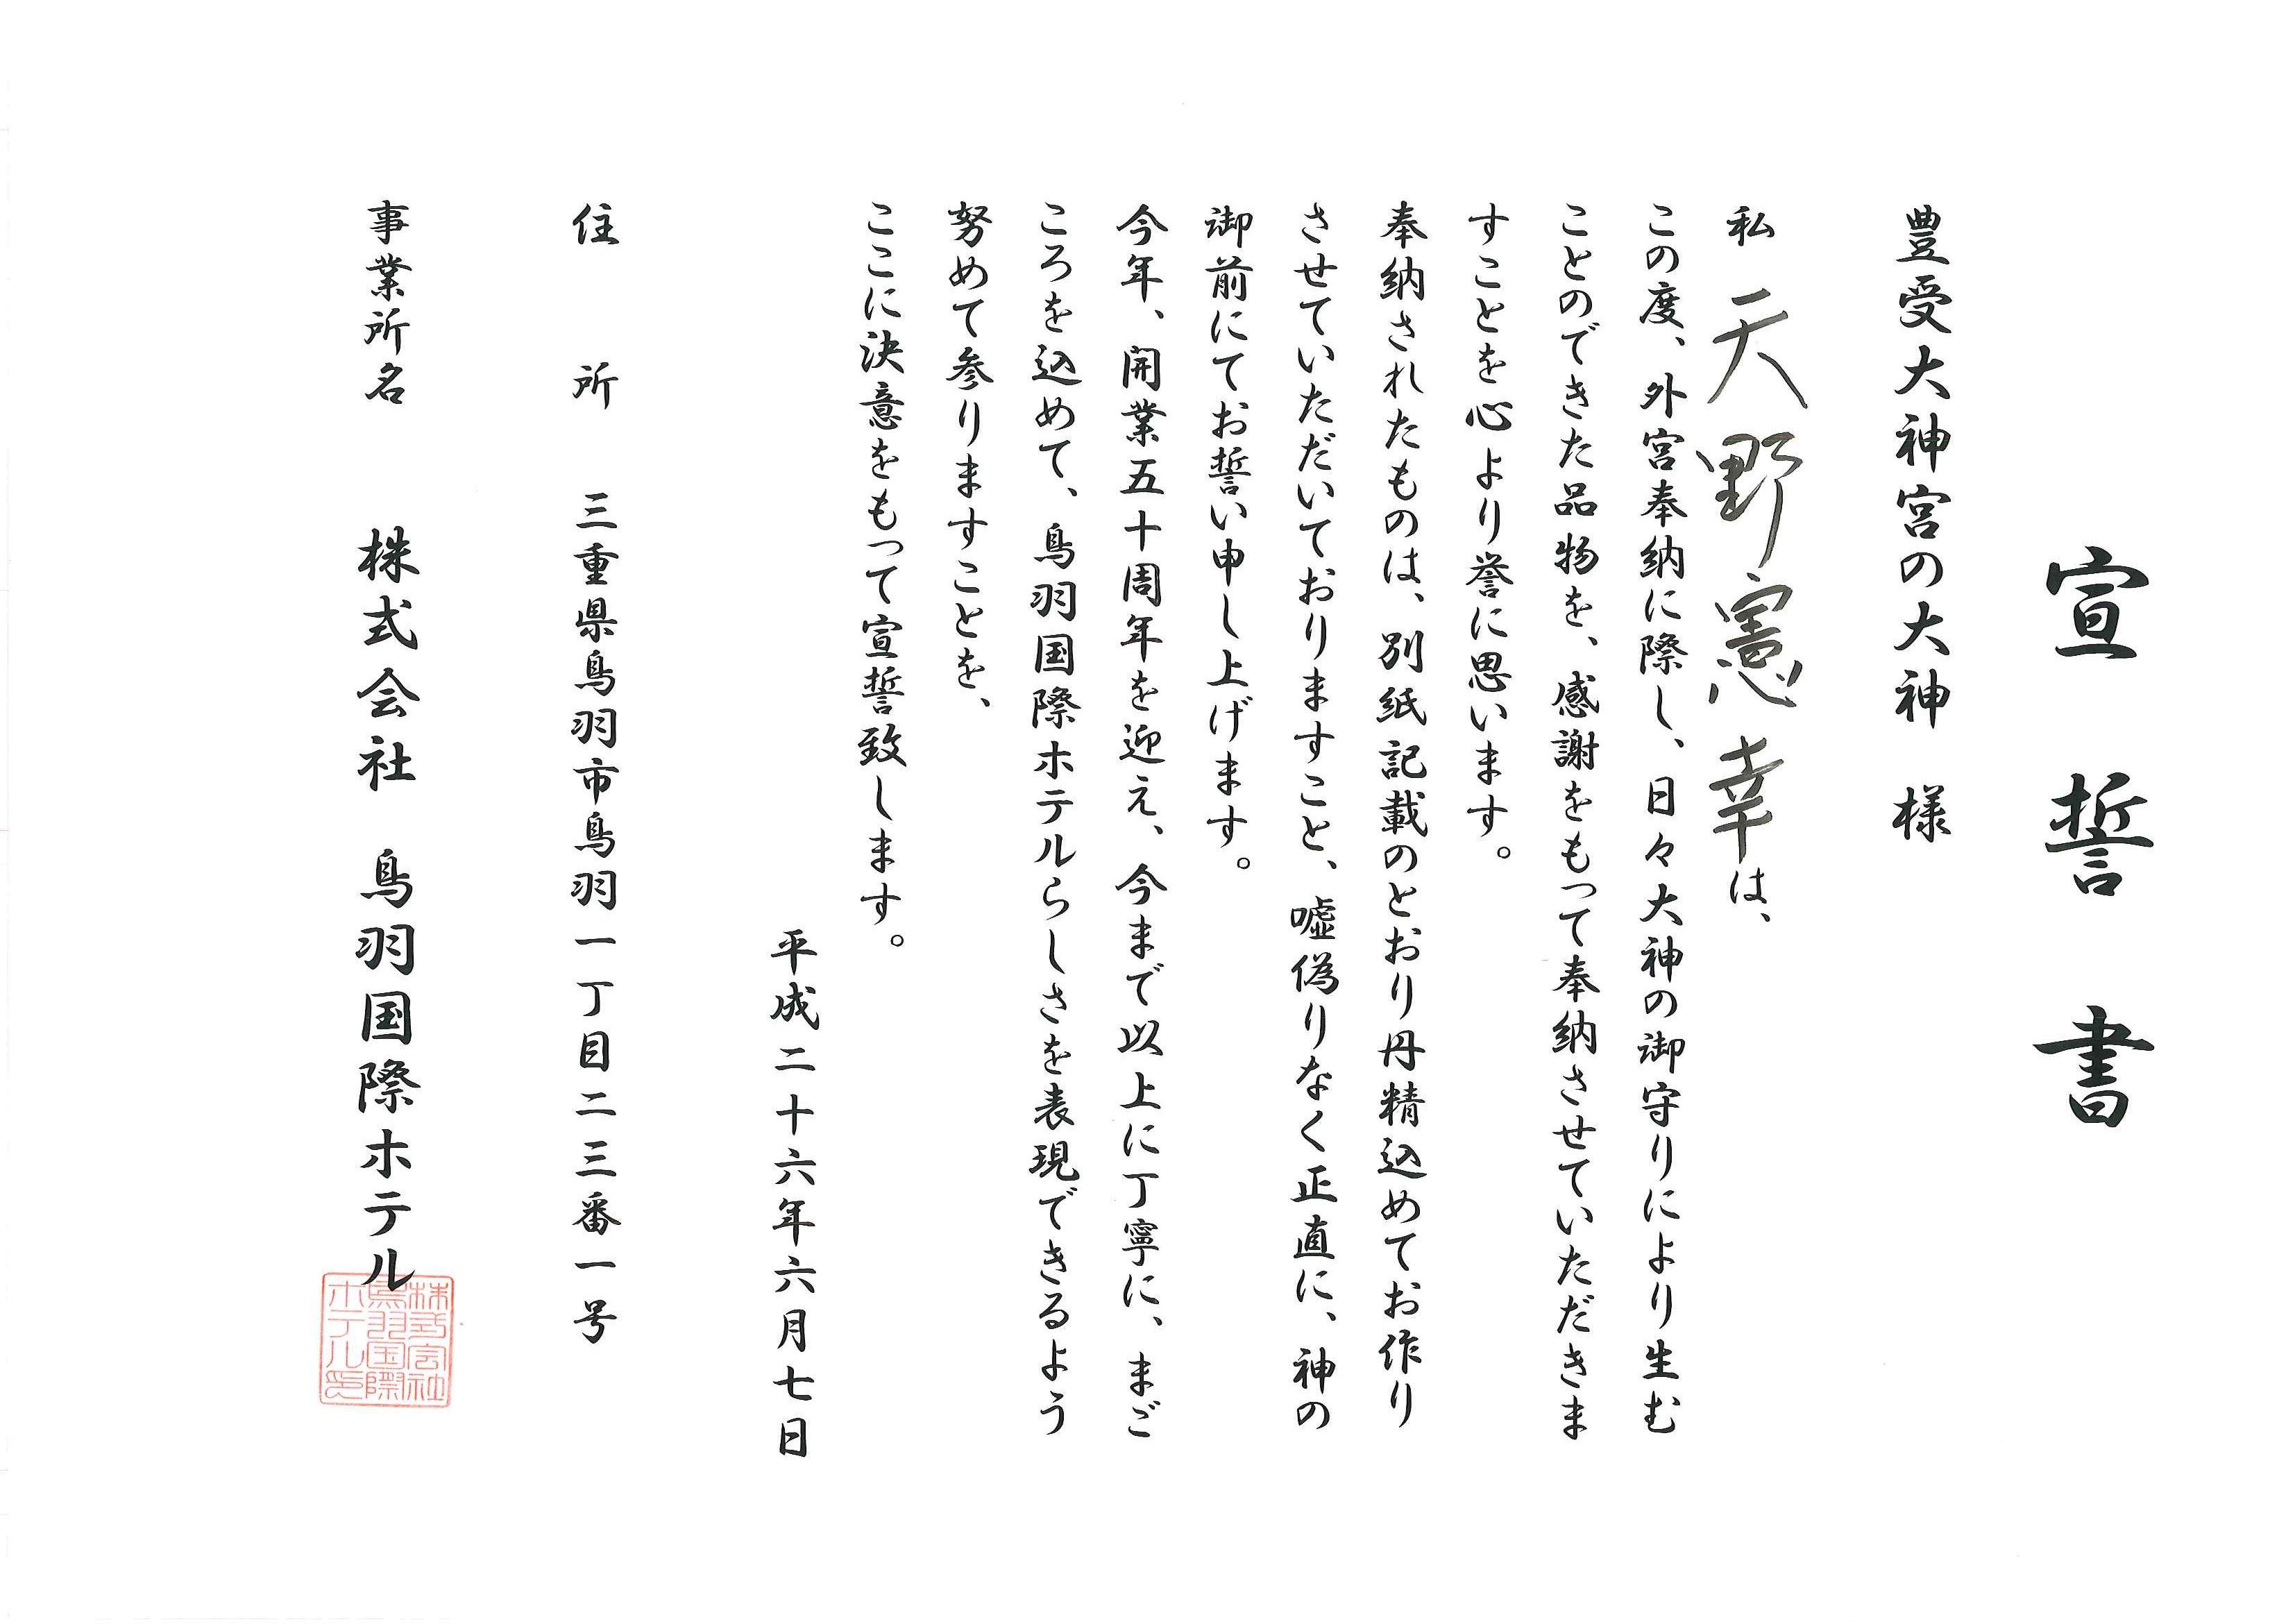 宣誓書
豊受大神宮の大神 様
私 天野憲幸は、
この度、外宮奉納に際し、日々大神の御守りにより生む
ことのできた品物を、感謝をもって奉納させていただきま
すことを心より誉に思います。
奉納されたものは、別紙記載のとおり丹精込めてお作り
させていただいておりますこと、嘘偽りなく正直に、神の
御前にてお誓い申し上げます。
今年、開業五十周年を迎え、今まで以上に丁寧に、まご
ころを込めて、鳥羽国際ホテルらしさを表現できるよう
努めて参りますことを、
ここに決意をもって宣誓致します。
平成二十六年六月七日
住所 三重県鳥羽市鳥羽一丁目二三番一号
事業所名 株式会社 鳥羽国際ホテル
株式会社
鳥羽国際
ホテル印